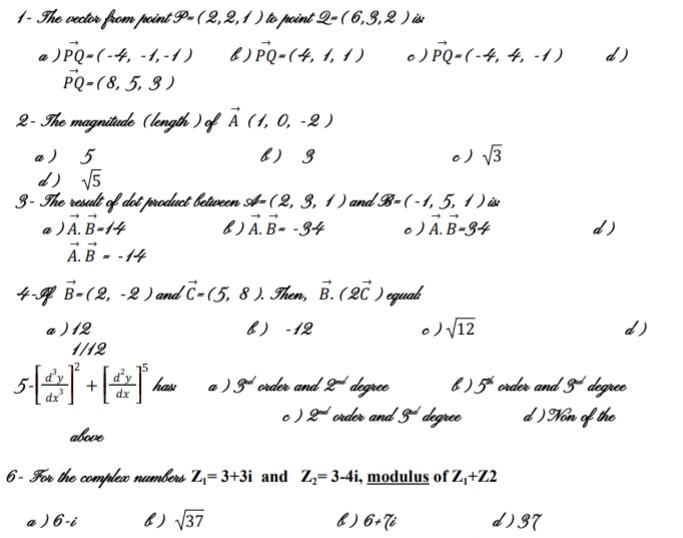 1- The vector from point P=(2,2,1) to point Q=(6,3,2) is:
a) PQ⃗=(-4, -1,-1) b) PQ⃗=(4, 1, 1) c) PQ⃗=(-4, 4, -1) d)
PQ⃗=(8, 5, 3)
2- The magnitude (length) of A⃗ (1, 0, -2)
a) 5 b) 3 c) √3
d) √5
3- The result of dot product between A=(2, 3, 1) and B=(-1, 5, 1) is:
a) A⃗.B⃗=14 b) A⃗.B⃗= -34 c) A⃗.B⃗=34 d)
A⃗.B⃗ = -14
4-If B⃗=(2, -2) and C⃗=(5, 8). Then, B⃗.(2C⃗) equals
a) 12 b) -12 c) √12 d)
1/12
5-[d³y/dx³]² + [d²y/dx]⁵ has: a) 3rd order and 2nd degree b) 5th order and 3rd degree
c) 2nd order and 3rd degree d) Non of the
above
6- For the complex numbers Z₁= 3+3i and Z₂= 3-4i, modulus of Z₁+Z2
a) 6-i b) √37 b) 6+7i d) 37